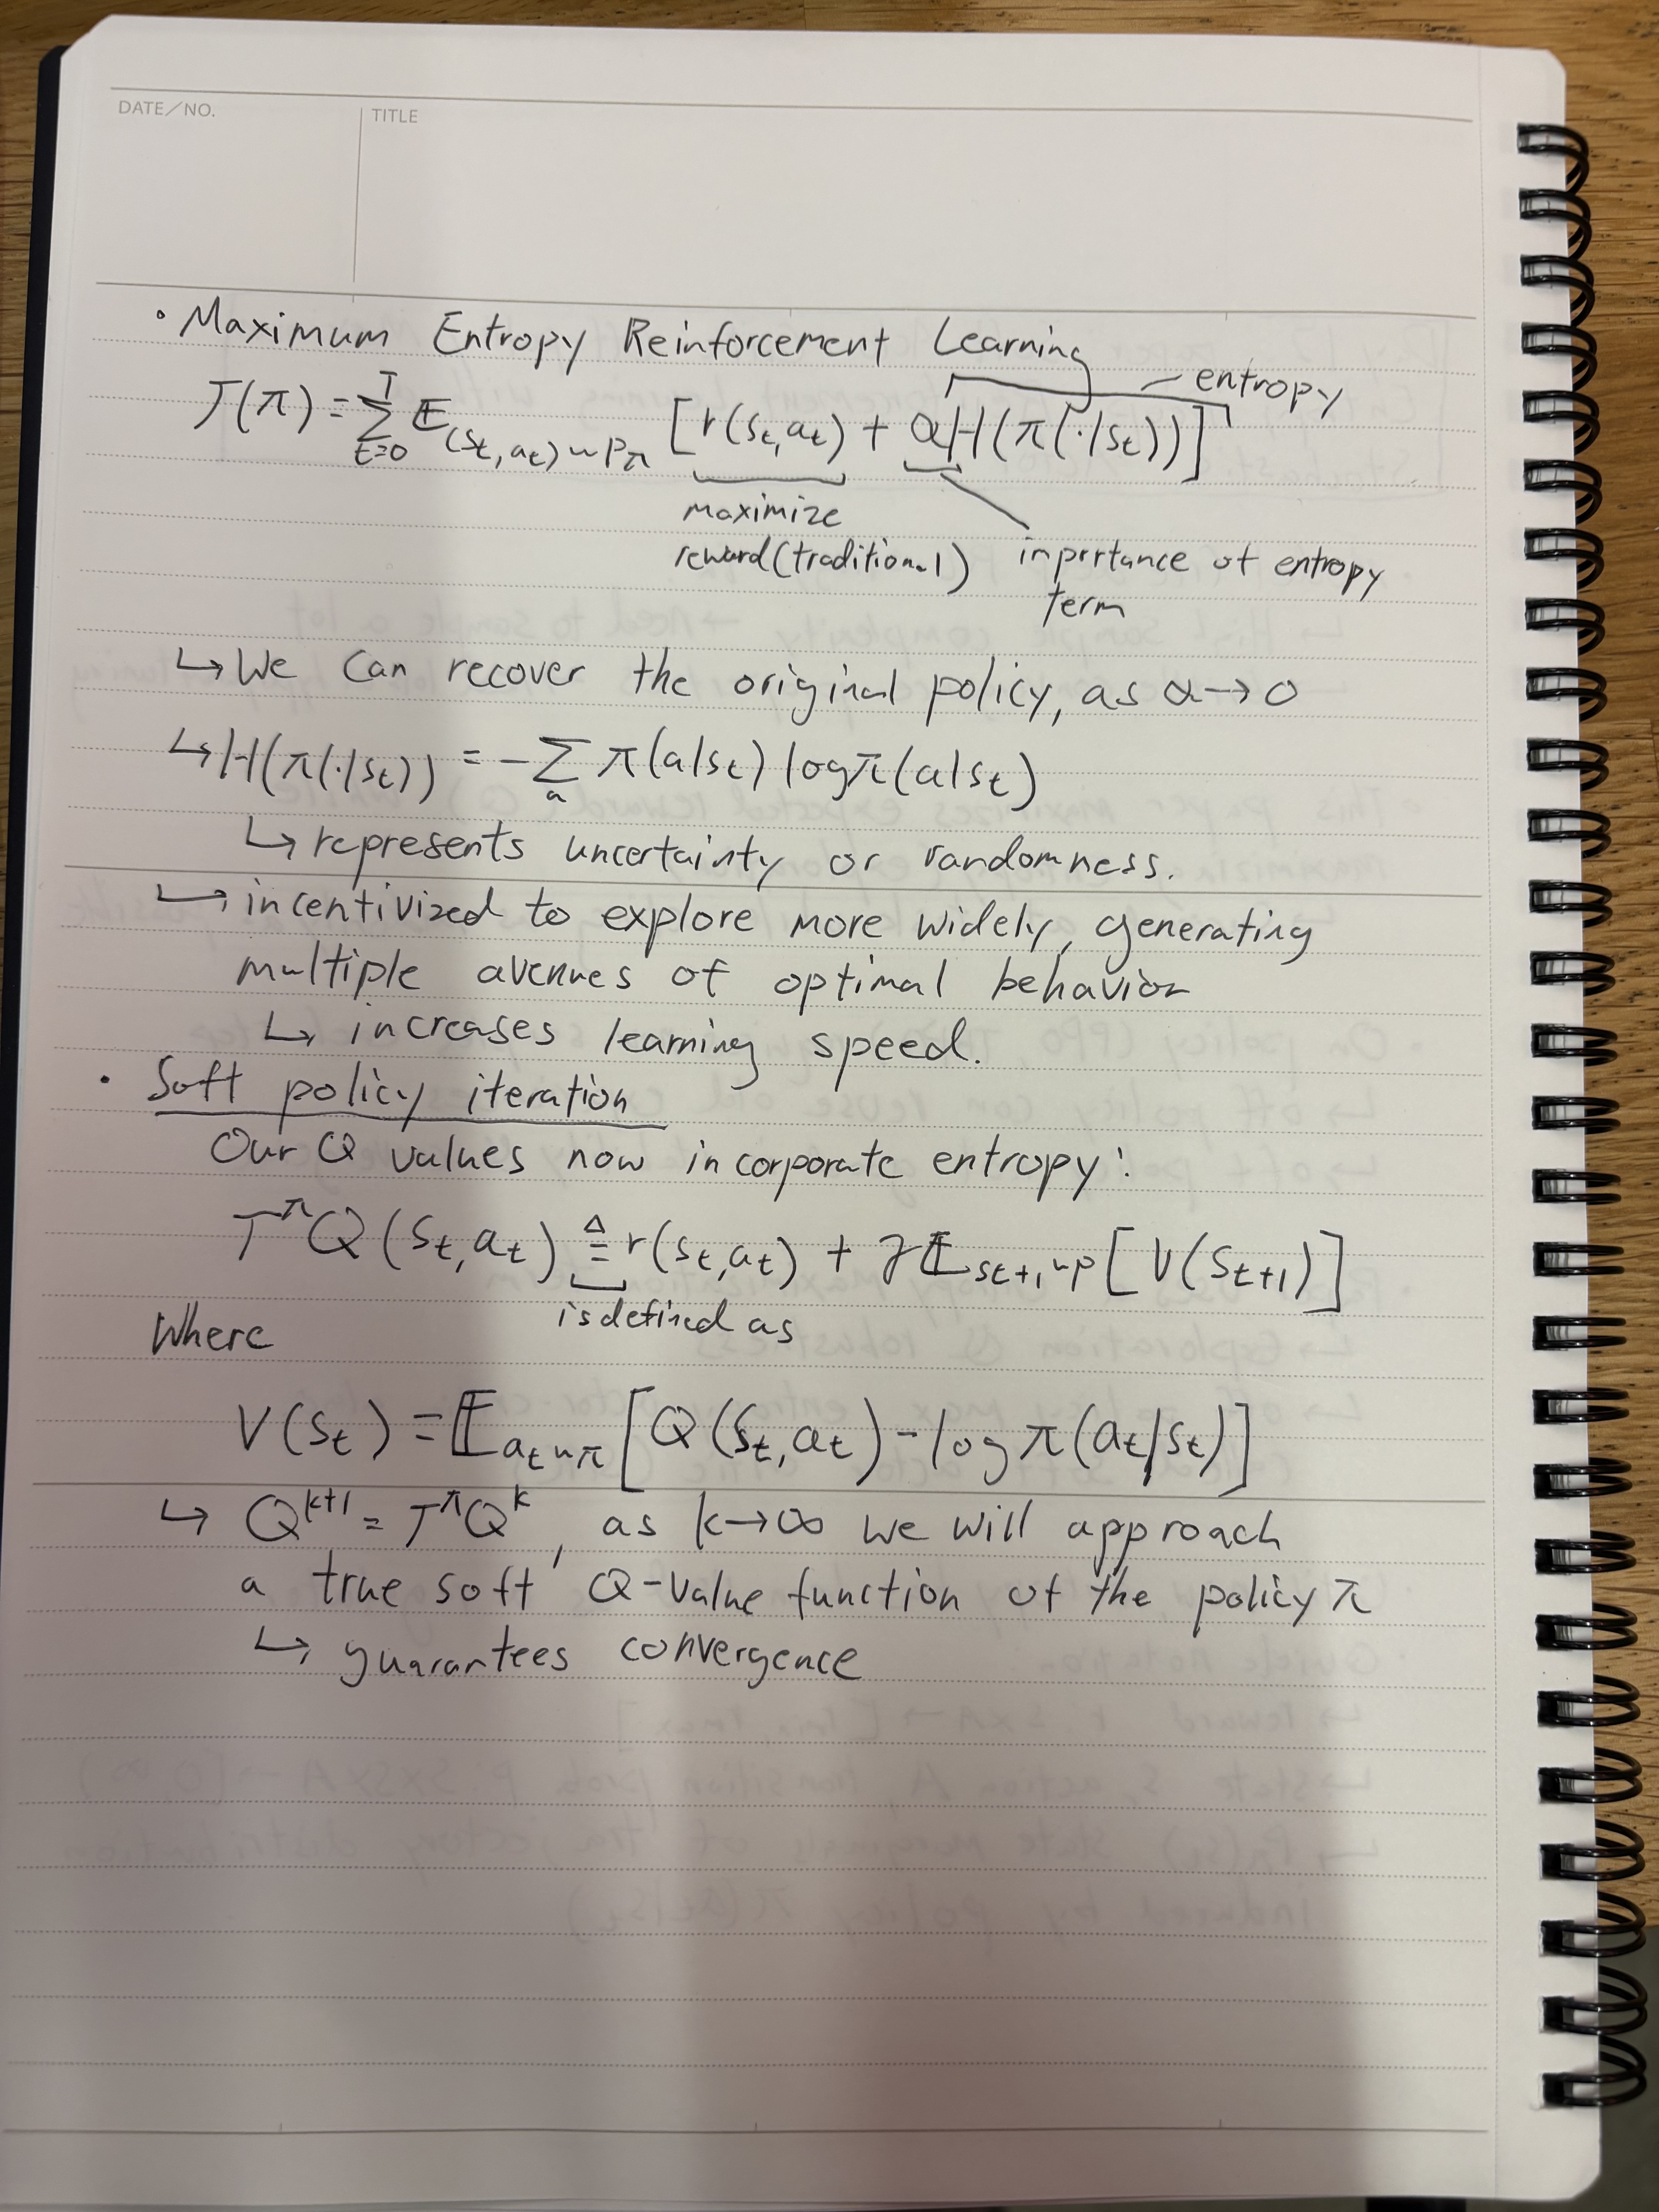 DATE/NO.
TITLE
• Maximum Entropy Reinforcement Learning
J(π) = Σ_{t=0}^{T} 𝔼_{(s_t, a_t) ~ p_π} [r(s_t, a_t) + αH(π(·|s_t))]
entropy
maximize
reward (traditional)
inportance of entropy
term
↳ We can recover the original policy, as α → 0
↳ H(π(·|s_t)) = -Σ_a π(a|s_t) log π(a|s_t)
↳ represents uncertainty or randomness.
↳ incentivized to explore more widely, generating
multiple avenues of optimal behavior
↳ increases learning speed.
• Soft policy iteration
Our Q values now incorporate entropy:
T^π Q(s_t, a_t) ≜ r(s_t, a_t) + γ𝔼_{s_{t+1} ~ p} [V(s_{t+1})]
is defined as
Where
V(s_t) = 𝔼_{a_t ~ π} [Q(s_t, a_t) - log π(a_t|s_t)]
↳ Q^{k+1} = T^π Q^k, as k → ∞ we will approach
a true soft Q-value function of the policy π
↳ guarantees convergence